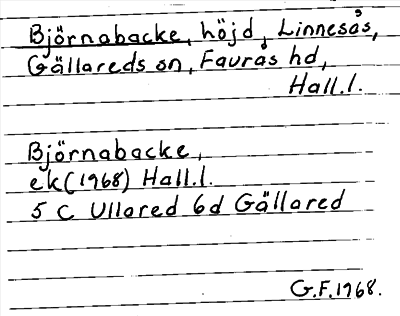 Björnabacke, höjd, Linnesås,
Gällareds sn, Faurås hd,
Hall.l.
Björnabacke,
ek (1968) Hall.l.
5 C Ullared 6d Gällared
G.F. 1968.